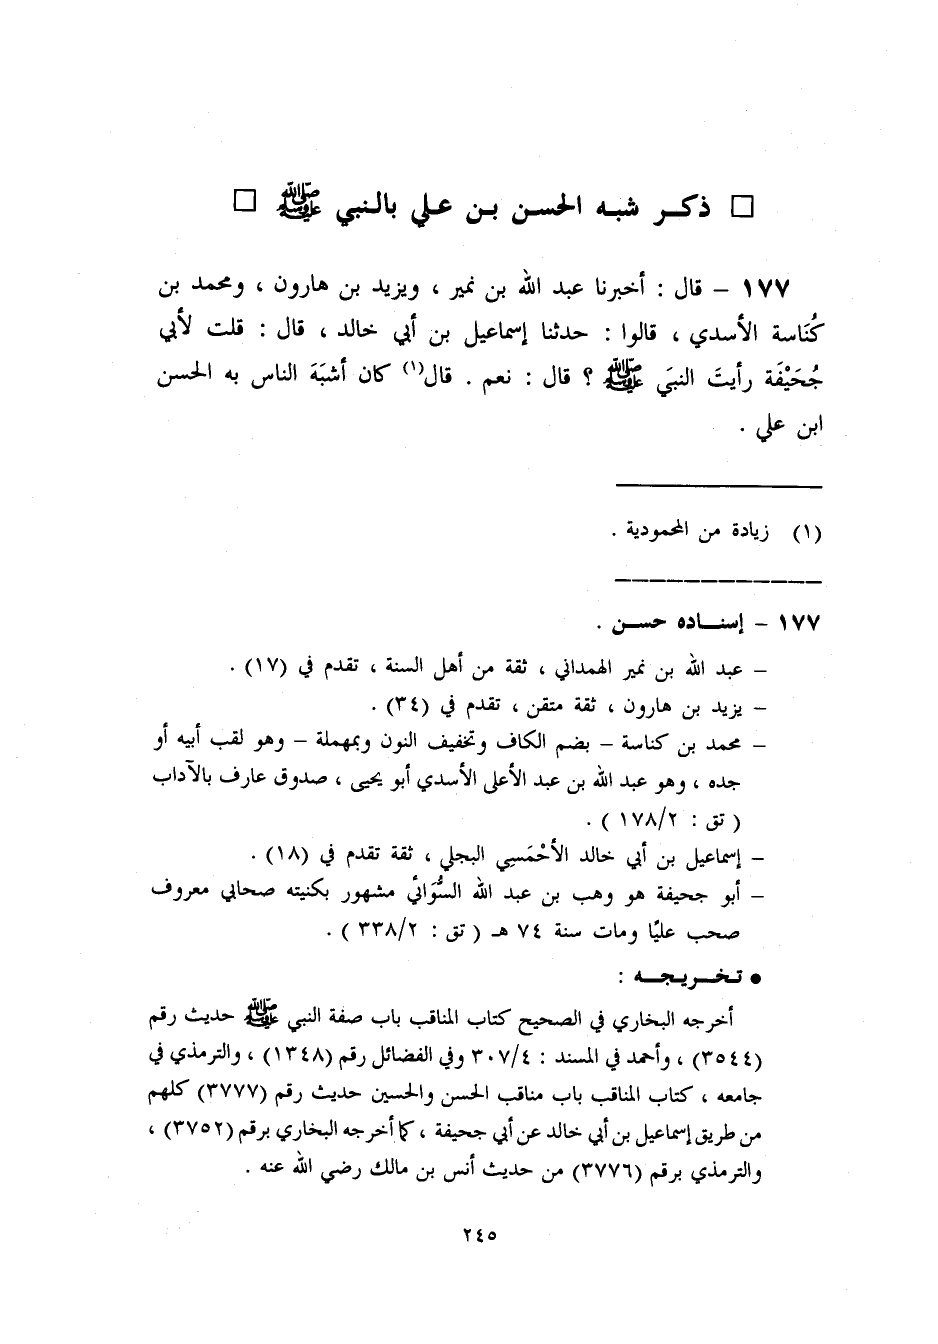 □ ذكر شبه الحسن بن علي بالنبي ﷺ □
١٧٧ – قال : أخبرنا عبد الله بن نمير ، ويزيد بن هارون ، ومحمد بن
كُنَاسة الأسدي ، قالوا : حدثنا إسماعيل بن أبي خالد ، قال : قلت لأبي
جُحَيْفَة رأيتَ النبيَ ﷺ ؟ قال : نعم . قال(١) كان أشبَهَ الناس به الحسن
ابن علي .
(١) زيادة من المحمودية .
١٧٧ – إسناده حسن .
– عبد الله بن نمير الهمداني ، ثقة من أهل السنة ، تقدم في (١٧) .
– يزيد بن هارون ، ثقة متقن ، تقدم في (٣٤) .
– محمد بن كناسة – بضم الكاف وتخفيف النون وبمهملة – وهو لقب أبيه أو
جده ، وهو عبد الله بن عبد الأعلى الأسدي أبو يحيى ، صدوق عارف بالآداب
( تق : ١٧٨/٢ ) .
– إسماعيل بن أبي خالد الأحْمَسِي البجلي ، ثقة تقدم في (١٨) .
– أبو جحيفة هو وهب بن عبد الله السُّوَائي مشهور بكنيته صحابي معروف
صحب عليًا ومات سنة ٧٤ هـ ( تق : ٣٣٨/٢ ) .
• تخريجه :
أخرجه البخاري في الصحيح كتاب المناقب باب صفة النبي ﷺ حديث رقم
(٣٥٤٤) ، وأحمد في المسند : ٣٠٧/٤ وفي الفضائل رقم (١٣٤٨) ، والترمذي في
جامعه ، كتاب المناقب باب مناقب الحسن والحسين حديث رقم (٣٧٧٧) كلهم
من طريق إسماعيل بن أبي خالد عن أبي جحيفة ، كما أخرجه البخاري برقم (٣٧٥٢) ،
والترمذي برقم (٣٧٧٦) من حديث أنس بن مالك رضي الله عنه .
٢٤٥